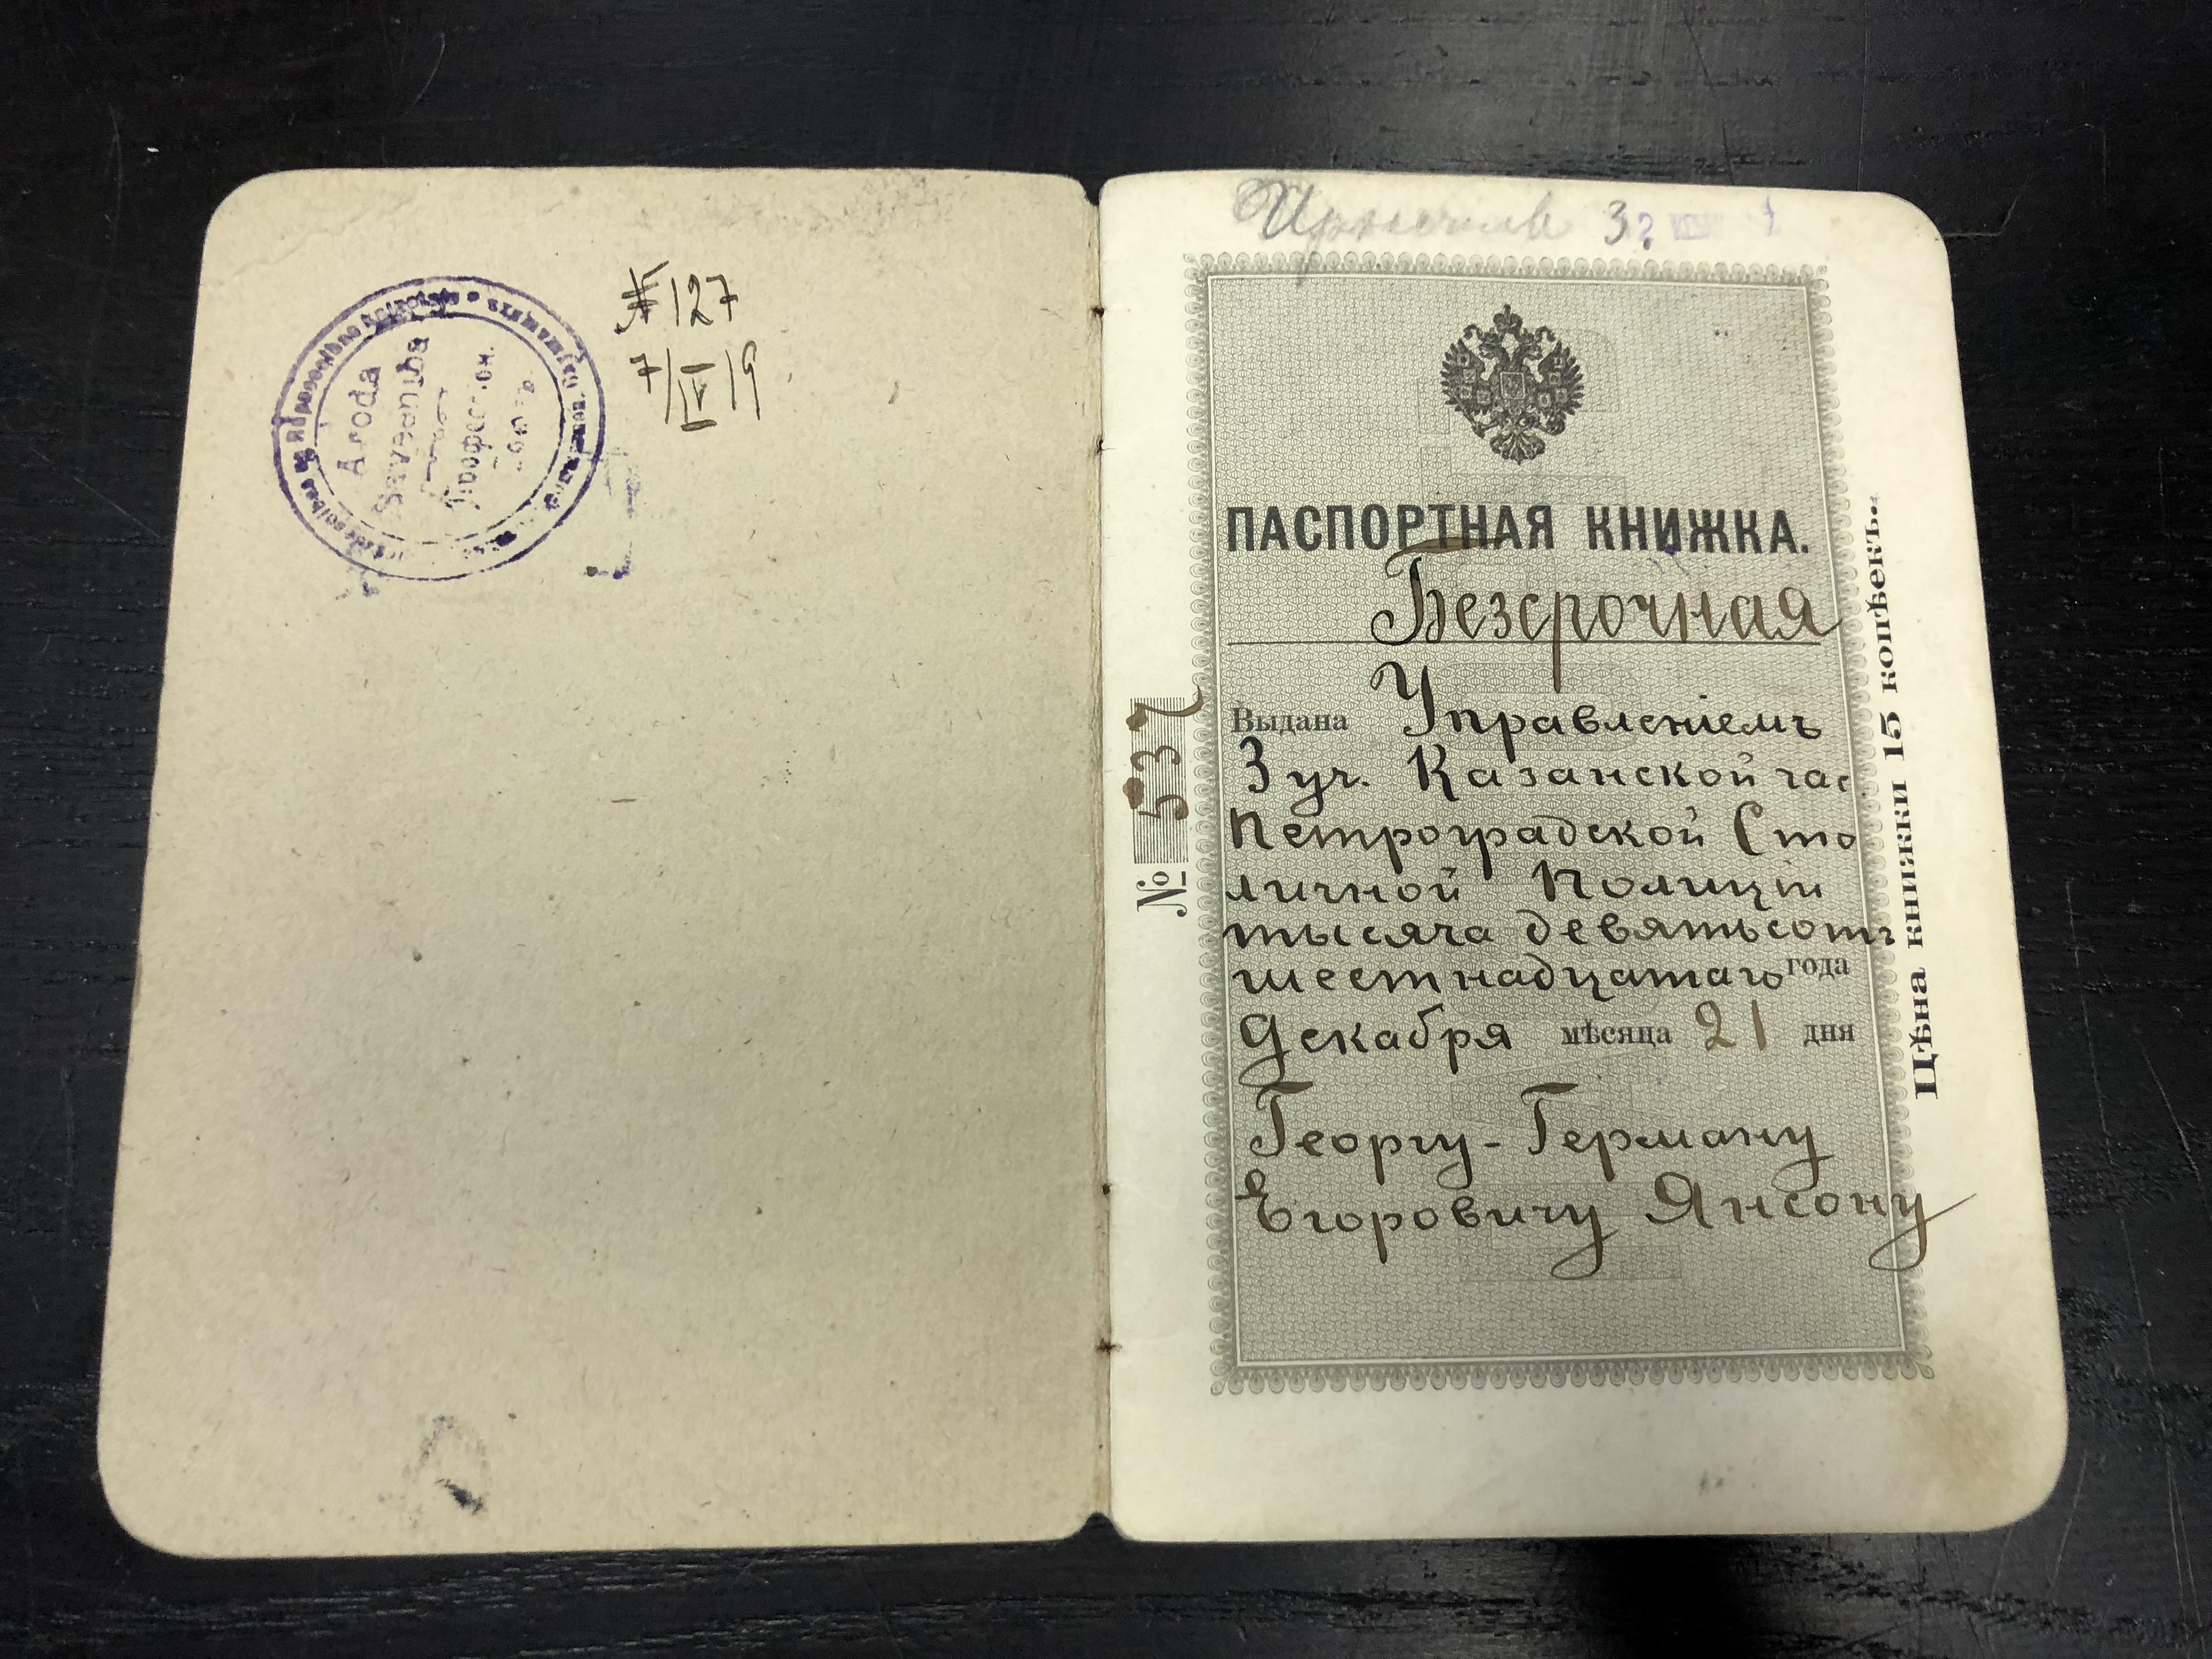 Aroda
Saveeniba
Професс.он.
№ 127
7/IV 19
3.
ПАСПОРТНАЯ КНИЖКА.
Безсрочная
Выдана Управленіемъ
3 уч. Казанской час
Петроградской Сто
личной Полиціи
тысяча девятьсотъ
шестнадцатаго года
Декабря мѣсяца 21 дня
Георгу-Герману
Егоровичу Янсону
№ 537
Цѣна книжки 15 копѣекъ.